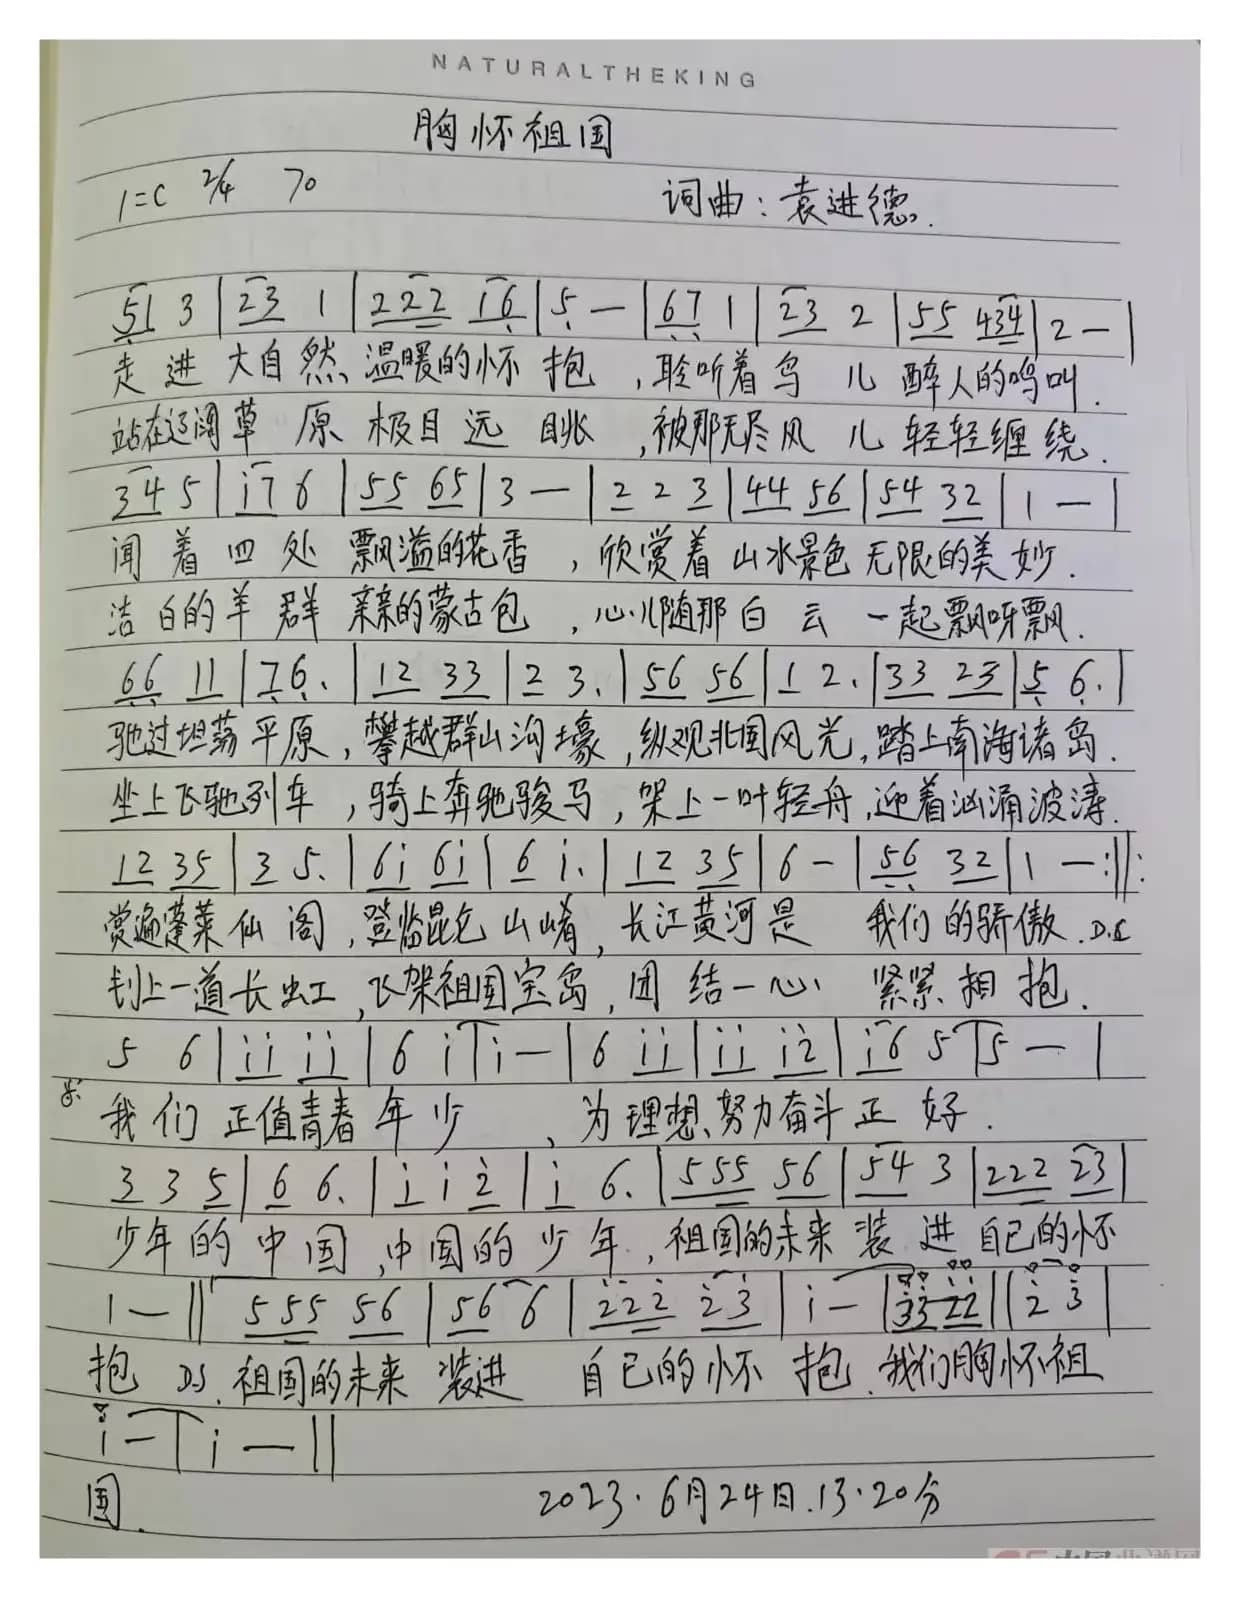 NATURALTHEKING
胸怀祖国
1=C 2/4 70 词曲：袁进德.
51 3 | 23 1 | 222 i6 | 5 — | 67 1 | 23 2 | 55 434 | 2 — |
走进大自然温暖的怀抱，聆听着鸟儿醉人的鸣叫.
站在辽阔草原极目远眺，被那无尽风儿轻轻缠绕.
34 5 | i7 6 | 55 65 | 3 — | 2 2 3 | 44 56 | 54 32 | 1 — |
闻着四处飘溢的花香，欣赏着山水景色无限的美妙.
洁白的羊群亲亲的蒙古包，心儿随那白云一起飘呀飘.
66 11 | 76. | 12 33 | 2 3. | 56 56 | 1 2. | 33 23 | 5 6. |
驰过坦荡平原，攀越群山沟壕，纵观北国风光，踏上南海诸岛.
坐上飞驰列车，骑上奔驰骏马，架上一叶轻舟，迎着汹涌波涛.
12 35 | 3 5. | 6i 6i | 6 i. | 12 35 | 6 — | 56 32 | 1 — :||:
赏遍蓬莱仙阁，登临昆仑山嵴，长江黄河是我们的骄傲. D.C
划上一道长虹，飞架祖国宝岛，团结一心紧紧相抱.
5 6 | ii ii | 6 i | i — | 6 ii | ii i2 | i6 5 | 5 — |
我们正值青春年少、为理想、努力奋斗正好.
3 3 5 | 6 6. | i i 2 | i 6. | 555 56 | 54 3 | 222 23 |
少年的中国，中国的少年，祖国的未来装进自己的怀
1 — || 555 56 | 56 6 | 222 23 | i — | 33 22 || 2 3 |
抱 D.S. 祖国的未来装进自己的怀抱.我们胸怀祖
i — | i — ||
国.
2023.6月24日.13.20分